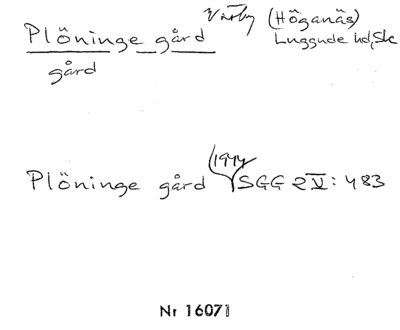 Plöninge gård Väsby (Höganäs)
Luggude hd, Sk
gård
1944
Plöninge gård SGG 2 V: 483
Nr 16071